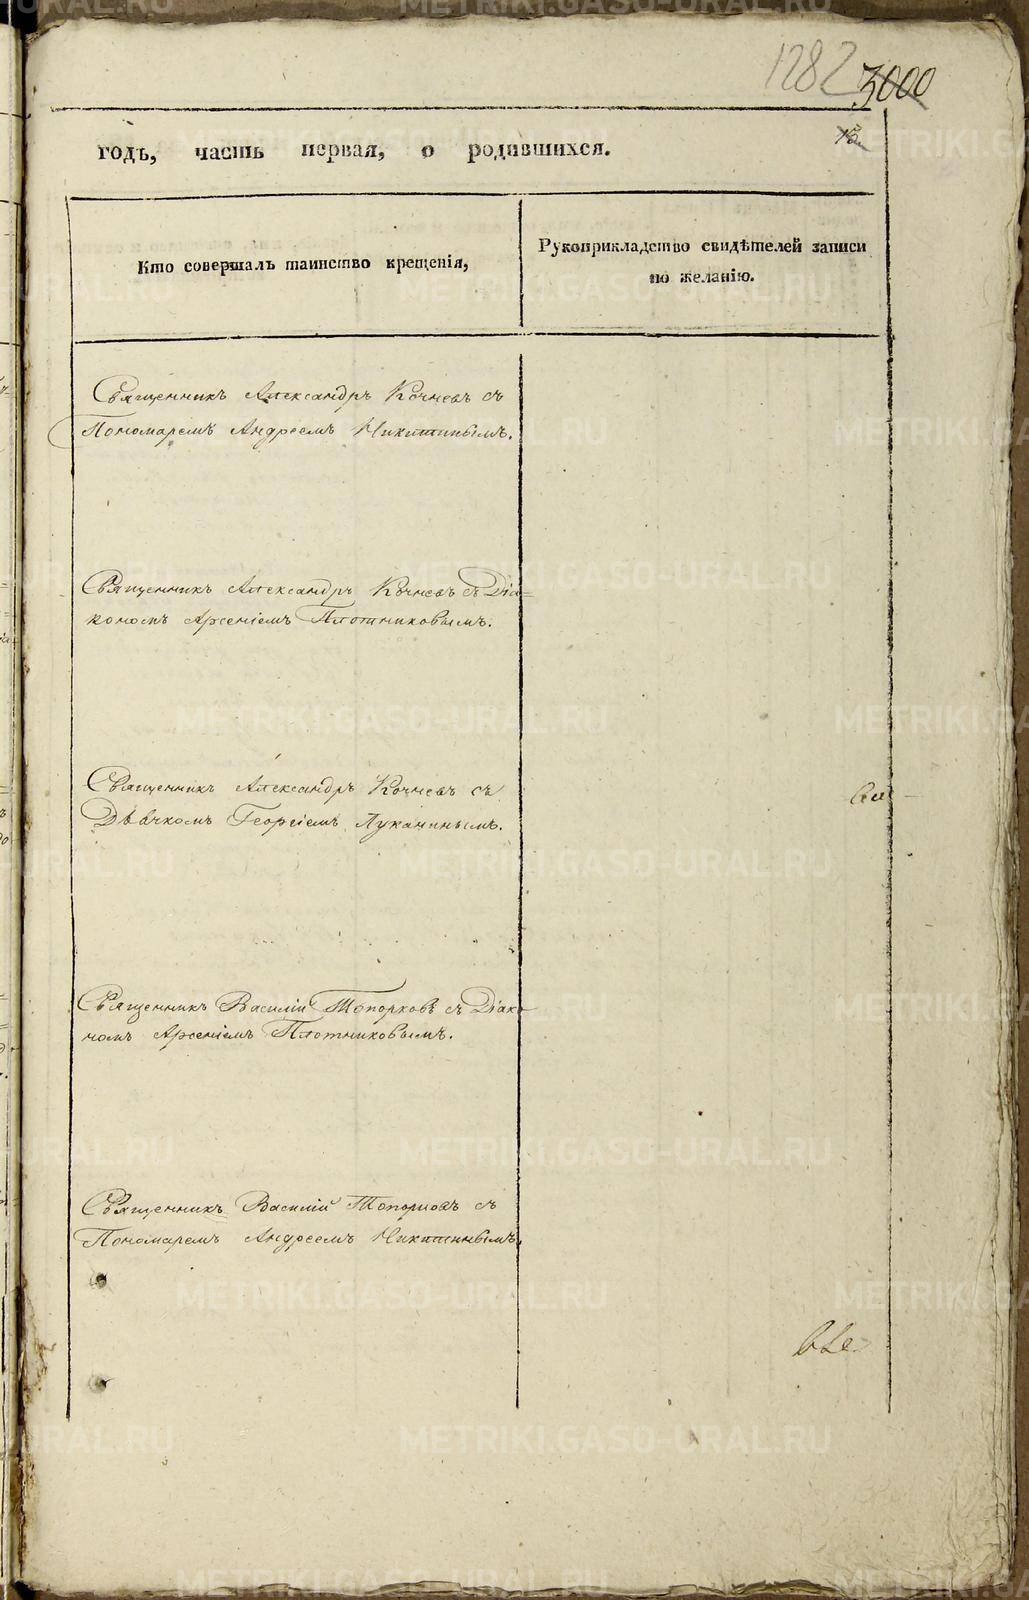 1282 3000
годъ, часть первая, о родившихся.
Кто совершалъ таинство крещенія,
Рукоприкладство свидѣтелей записи
по желанію.
Священникъ Александръ Кочневъ съ
Пономаремъ Андреемъ Никитинымъ.
Священникъ Александръ Кочневъ съ Діа=
кономъ Арсеніемъ Плотниковымъ.
Священникъ Александръ Кочневъ съ
Дьячкомъ Георгіемъ Луканинымъ.
Священникъ Василій Топорковъ съ Діако
номъ Арсеніемъ Плотниковымъ.
Священникъ Василій Топорковъ съ
Пономаремъ Андреемъ Никитинымъ.
METRIKI.GASO-URAL.RU